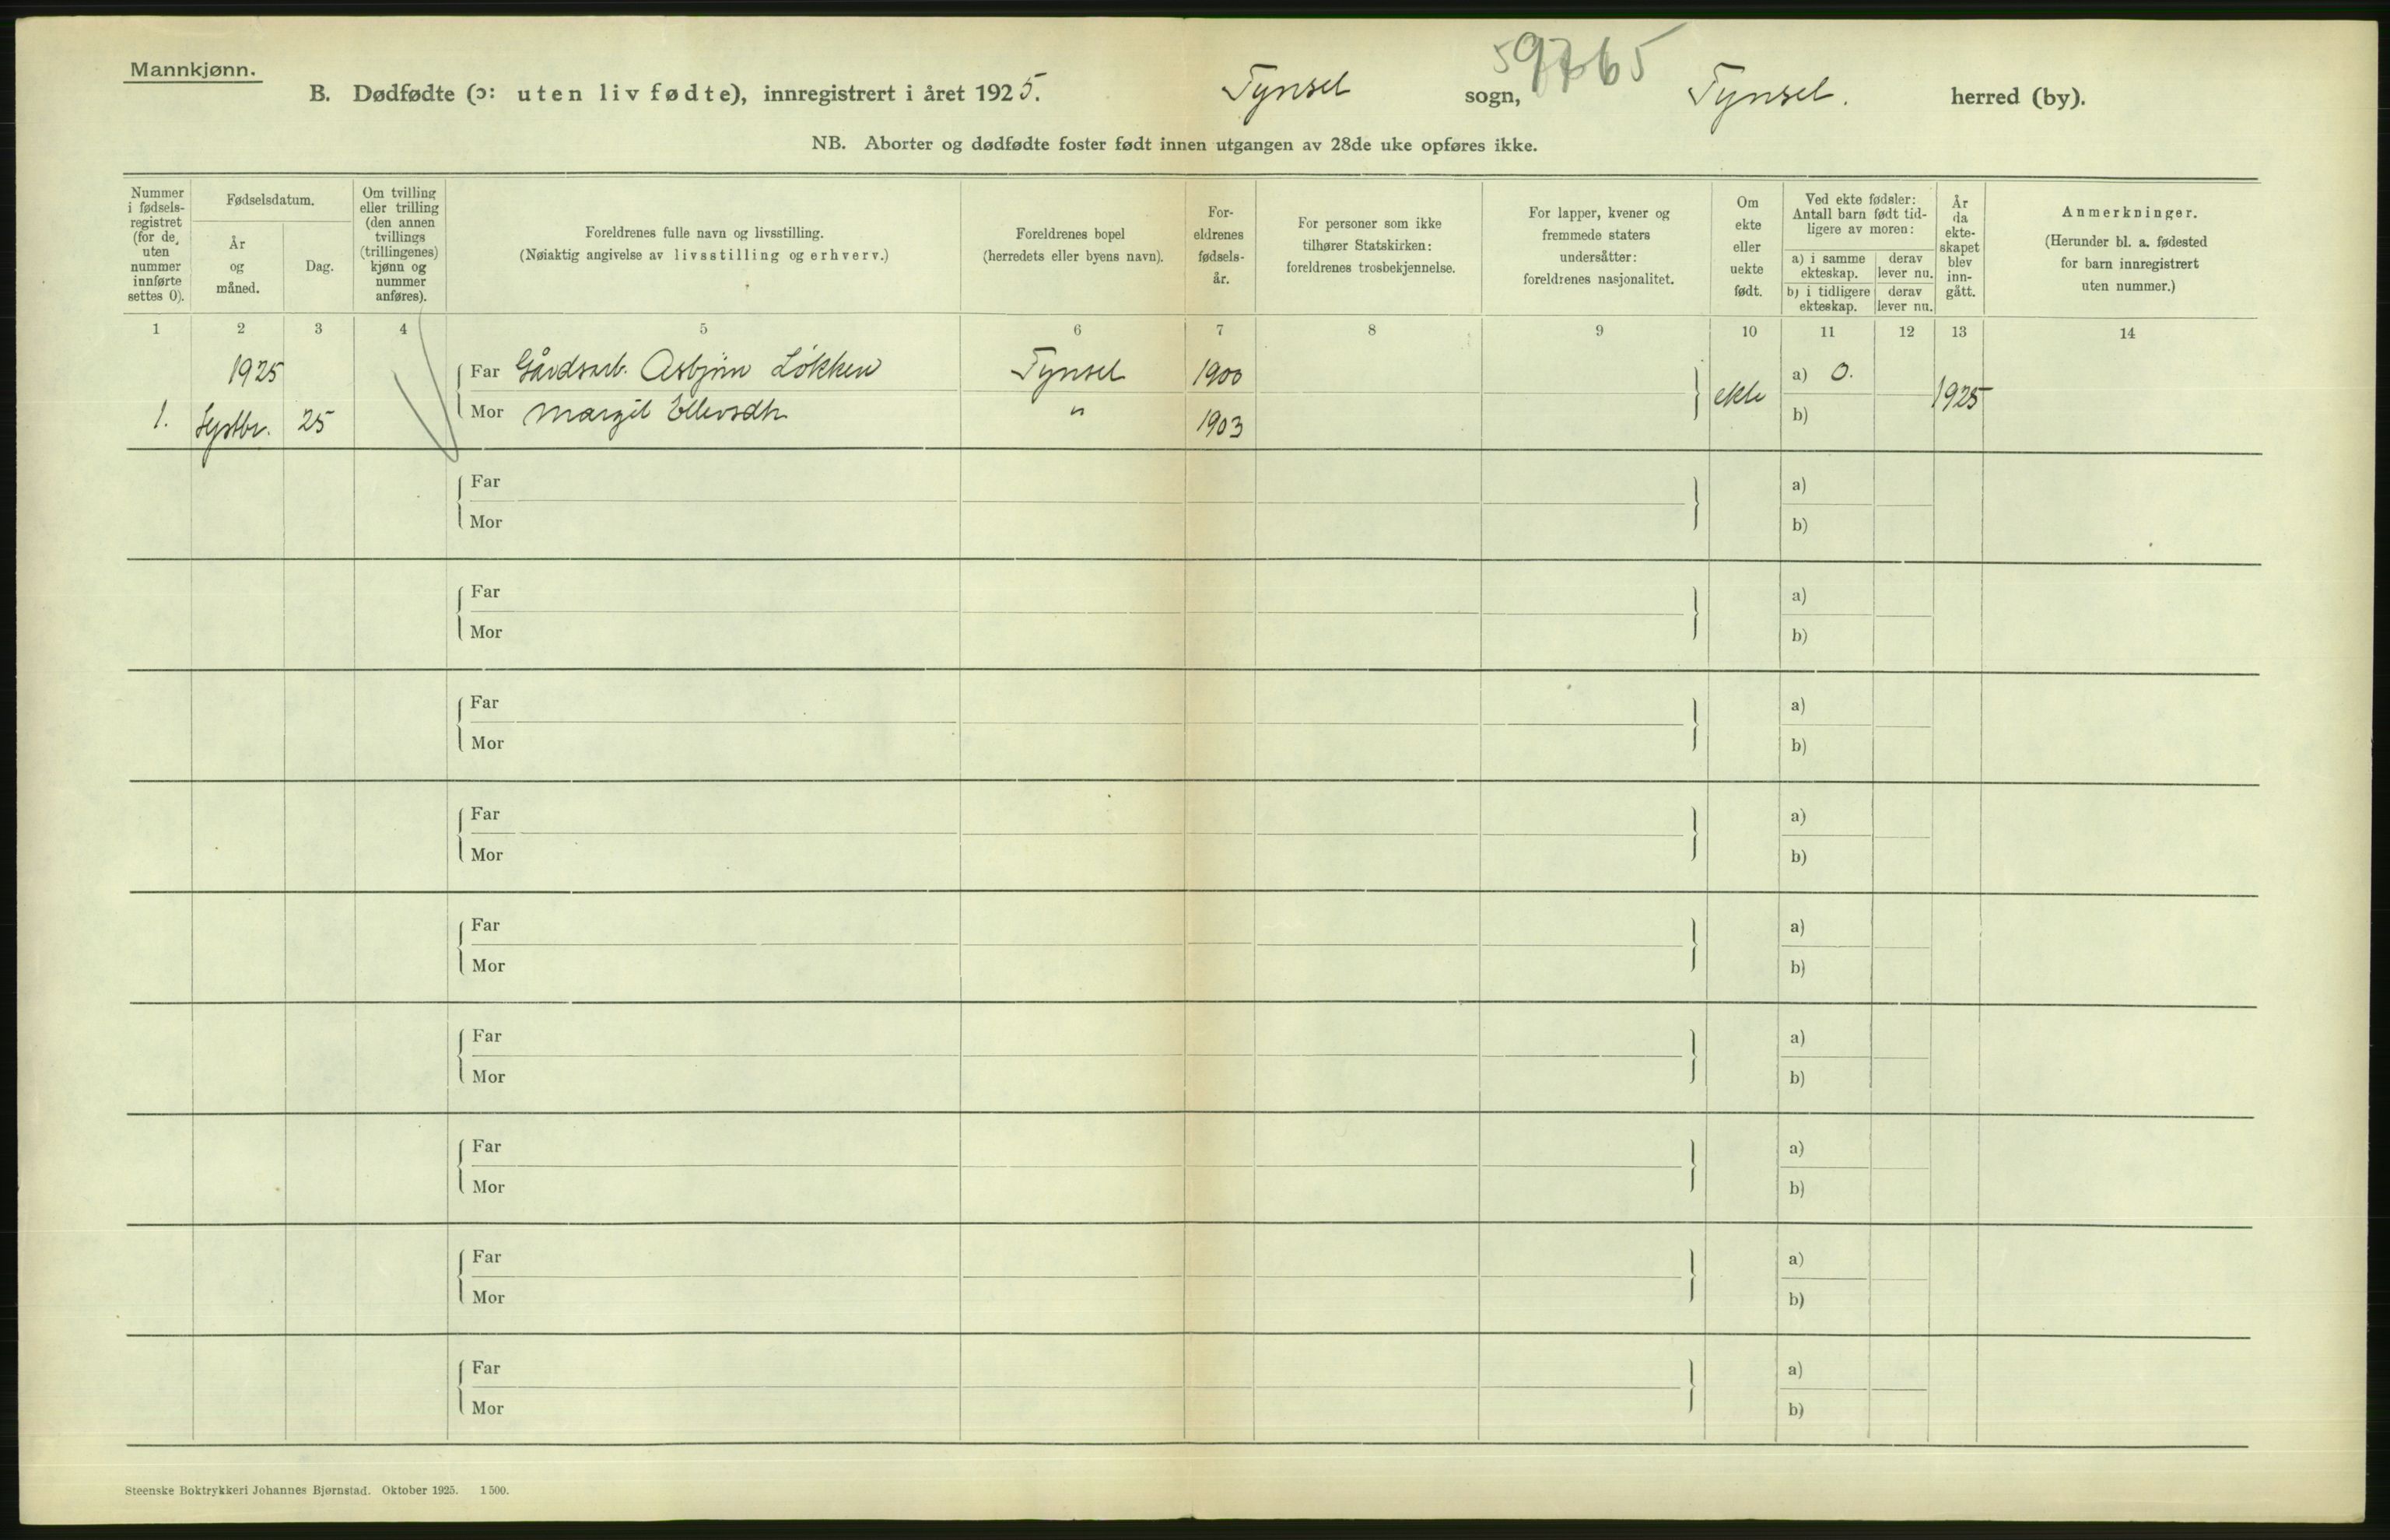 Mannkjønn.
B. Dødfødte (ɔ: uten liv fødte), innregistrert i året 1925. Tynset sogn, Tynset. herred (by).
NB. Aborter og dødfødte foster født innen utgangen av 28de uke opføres ikke.
Nummer i fødsels-registret (for de uten nummer innførte settes 0).
Fødselsdatum.
År og måned.
Dag.
Om tvilling eller trilling (den annen tvillings (trillingenes) kjønn og nummer anføres).
Foreldrenes fulle navn og livsstilling.
(Nøiaktig angivelse av livsstilling og erhverv.)
Foreldrenes bopel
(herredets eller byens navn).
For-eldrenes fødsels-år.
For personer som ikke tilhører Statskirken: foreldrenes trosbekjennelse.
For lapper, kvener og fremmede staters undersåtter: foreldrenes nasjonalitet.
Om ekte eller uekte født.
Ved ekte fødsler: Antall barn født tid-ligere av moren:
a) i samme ekteskap.
derav lever nu.
b) i tidligere ekteskap.
derav lever nu.
År da ekte-skapet blev inn-gått.
Anmerkninger.
(Herunder bl. a. fødested for barn innregistrert uten nummer.)
1 2 3 4 5 6 7 8 9 10 11 12 13 14
1925 Far Gårdsarb. Asbjörn Løkken Tynset 1900 ekte a) 0. 1925
1. Septbr. 25 Mor Margit Ellevsdtr " 1903 b)
Far a)
Mor b)
Far a)
Mor b)
Far a)
Mor b)
Far a)
Mor b)
Far a)
Mor b)
Far a)
Mor b)
Far a)
Mor b)
Far a)
Mor b)
Far a)
Mor b)
Steenske Boktrykkeri Johannes Bjørnstad. Oktober 1925. 1500.